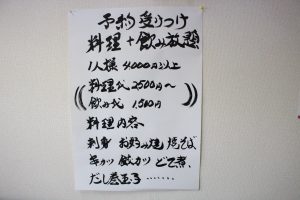 予約受りつけ
料理+飲み放題
1人様 4000円以上
料理代 2500円〜
飲み代 1,500円
料理内容
刺身 お好み焼 焼そば
串カツ 鉄カツ どて煮、
だし巻玉子 ‥‥‥‥